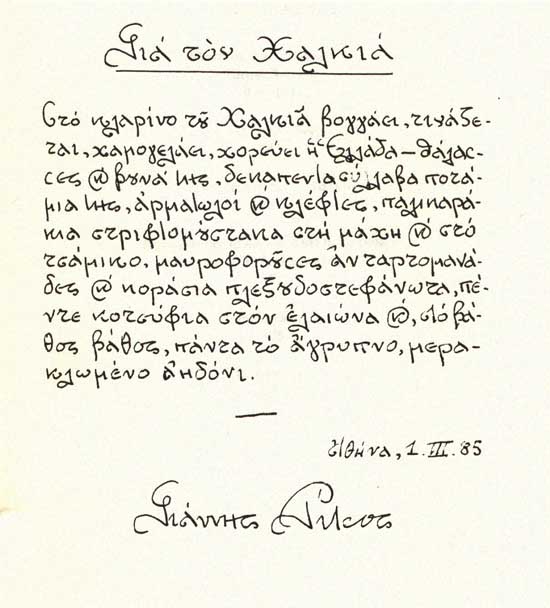 Γιά τὸν Χαλκιά
Στό κλαρίνο τοῦ Χαλκιᾶ βογγάει, τινάζε-
ται, χαμογελάει, χορεύει ἡ Ἑλλάδα – θάλασ-
σες καί βουνά της, δεκαπεντασύλλαβα ποτά-
μια της, ἀρματωλοί καί κλέφτες, παλικαρά-
κια στριφτομούστακα στή μάχη καί στό
τσάμικο, μαυροφοροῦσες ἀνταρτομανά-
δες καί κοράσια πλεξουδοστεφάνωτα, πέ-
ντε κοτσύφια στόν ἐλαιώνα καί, στό βά-
θος βάθος, πάντα τό ἄγρυπνο, μερα-
κλωμένο ἀηδόνι.
Ἀθήνα, 1.III.85
Γιάννης Ρίτσος